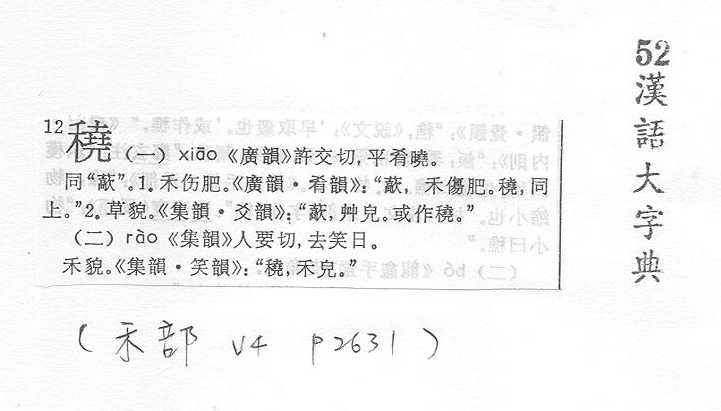 52漢語大字典
12穘(一)xiāo《廣韻》許交切,平肴曉。
同“藃”。1.禾伤肥。《廣韻・肴韻》:“藃,禾傷肥。穘,同
上。”2.草貌。《集韻・爻韻》:“藃,艸皃。或作穘。”
(二)rào《集韻》人要切,去笑日。
禾貌。《集韻・笑韻》:“穘,禾皃。”
(禾部 V4 P2631)